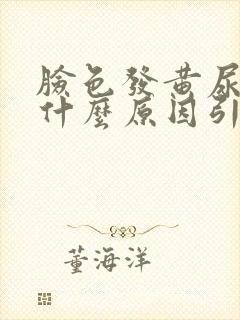 臉色發黃尿
什麼原因引
董海洋